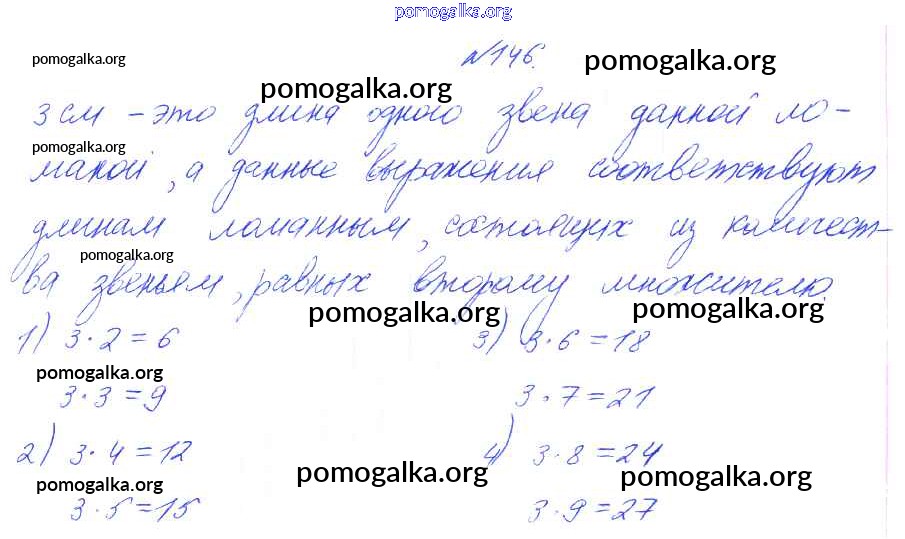 pomogalka.org
№146.
pomogalka.org
pomogalka.org
pomogalka.org
3 см - это длина одного звена данной ло-
pomogalka.org
маной, а данные выражения соответствуют
длинам ломанным, состоящих из количест-
pomogalka.org
ва звеньем, равных второму множителю.
pomogalka.org
pomogalka.org
1) 3·2=6
3·3=9
pomogalka.org
2) 3·4=12
3·5=15
pomogalka.org
3) 3·6=18
3·7=21
4) 3·8=24
3·9=27
pomogalka.org
pomogalka.org